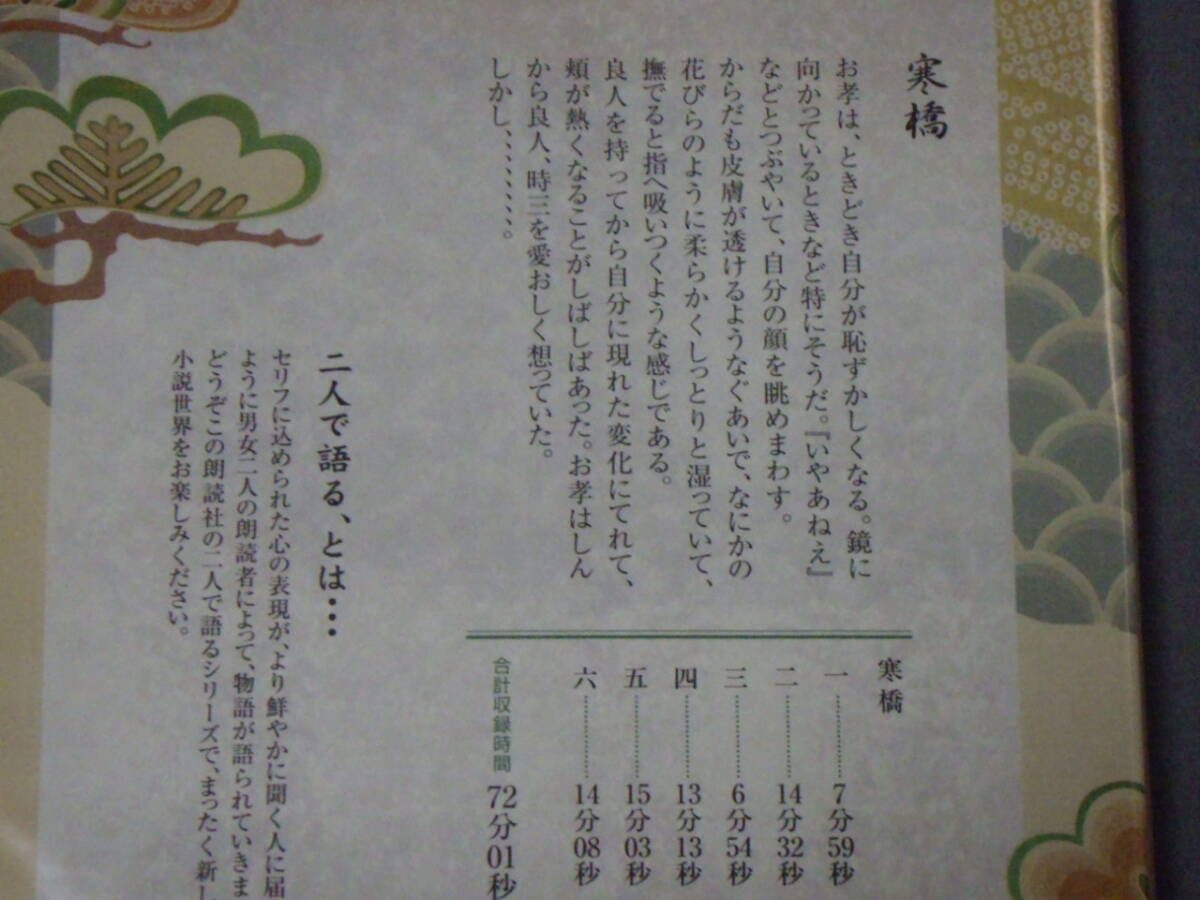 寒橋
お孝は、ときどき自分が恥ずかしくなる。鏡に
向かっているときなど特にそうだ。『いやあねえ』
などとつぶやいて、自分の顔を眺めまわす。
からだも皮膚が透けるようなぐあいで、なにかの
花びらのように柔らかくしっとりと湿っていて、
撫でると指へ吸いつくような感じである。
良人を持ってから自分に現れた変化にてれて、
頬が熱くなることがしばしばあった。お孝はしん
から良人、時三を愛おしく想っていた。
しかし、、、、、、、、。
寒橋
一 7分59秒
二 14分32秒
三 6分54秒
四 13分13秒
五 15分03秒
六 14分08秒
合計収録時間 72分01秒
二人で語る、とは・・・
セリフに込められた心の表現が、より鮮やかに聞く人に届
ように男女二人の朗読者によって、物語が語られていきま
どうぞこの朗読社の二人で語るシリーズで、まったく新し
小説世界をお楽しみください。